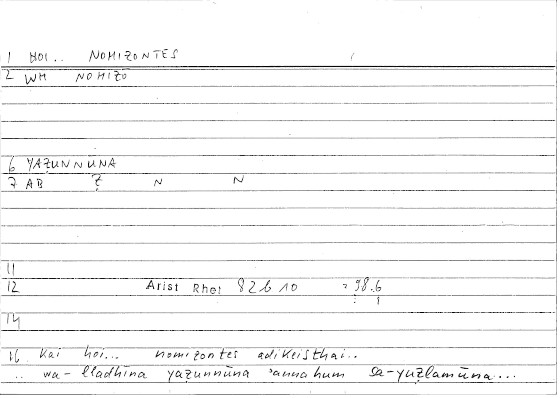 1 HOI.. NOMIZONTES
2 WM NOMIZO
6 YAẒUNNŪNA
7 AB Ẓ N N
11
12 Arist Rhet 82b10 98.6
14
16 Kai hoi... nomizontes adikeisthai..
.. wa-lladhīna yaẓunnūna ʾannahum sa-yuẓlamūna...